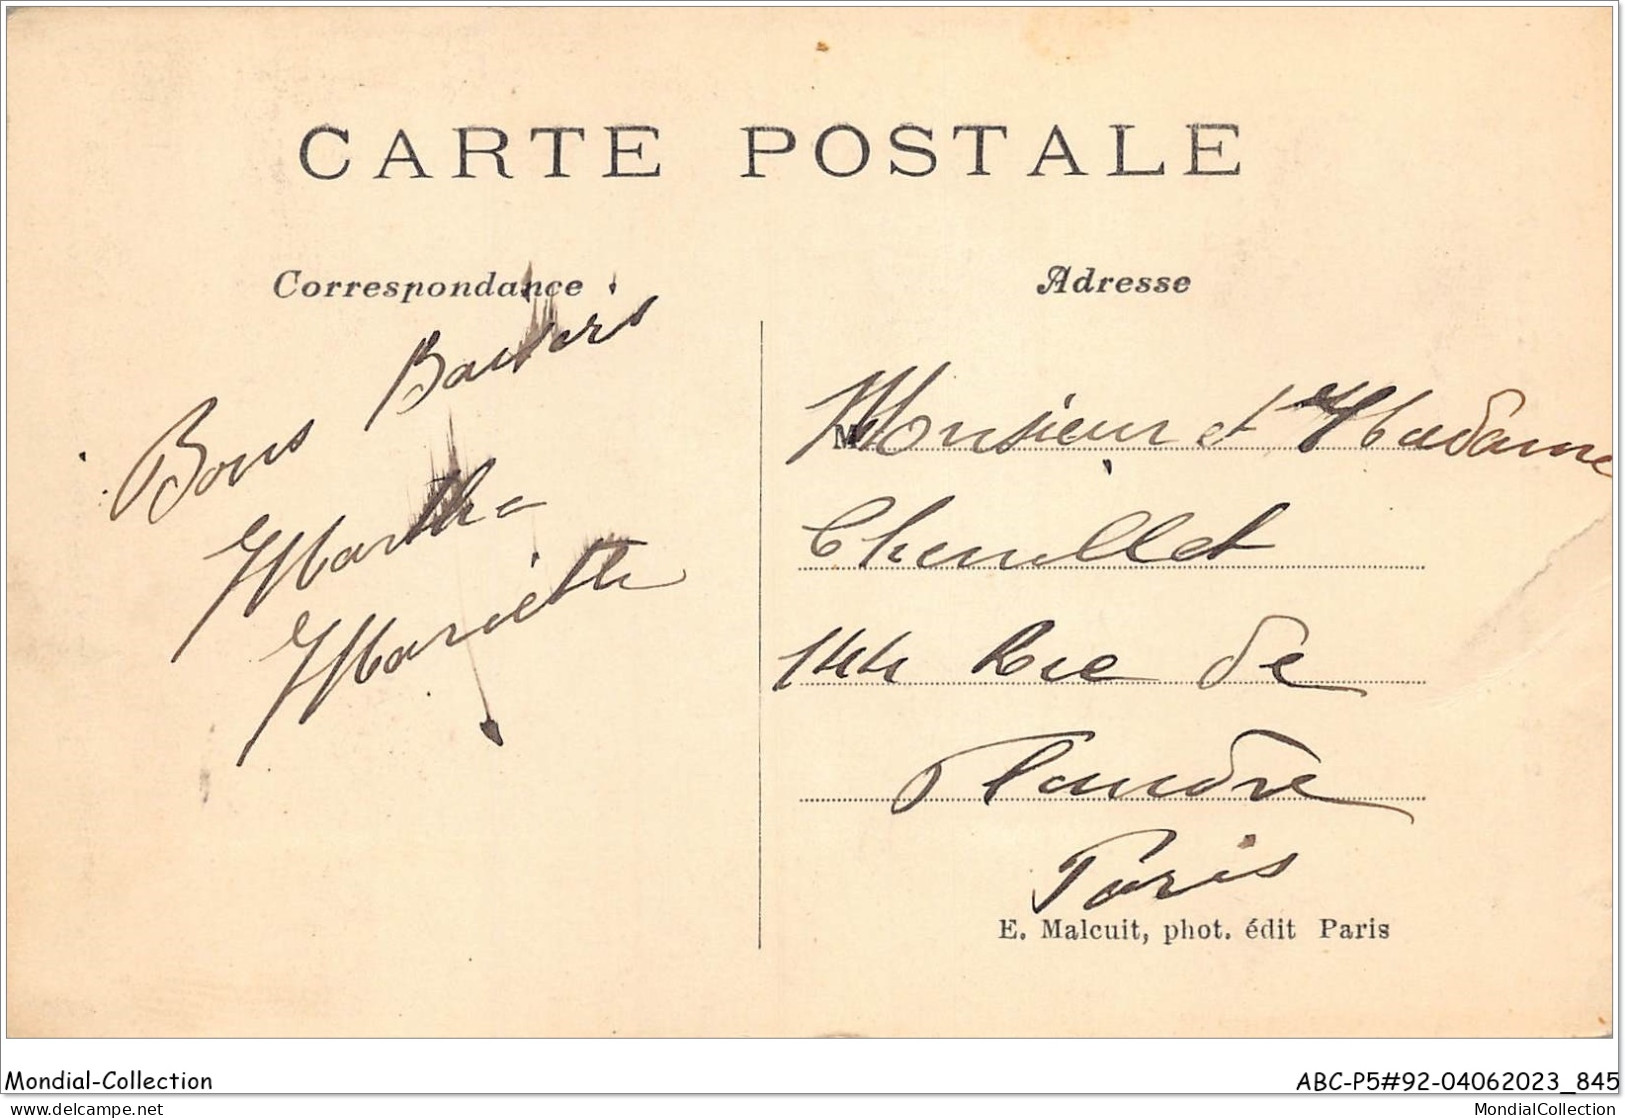 CARTE POSTALE
Correspondance
Adresse
Bons Baisers
Marthe
Mariette
M
Monsieur et Madame
144 Rue de
Flandre
Paris
E. Malcuit, phot. édit Paris
Mondial-Collection
ABC-P5#92-04062023_845
delcampe.net
MondialCollection